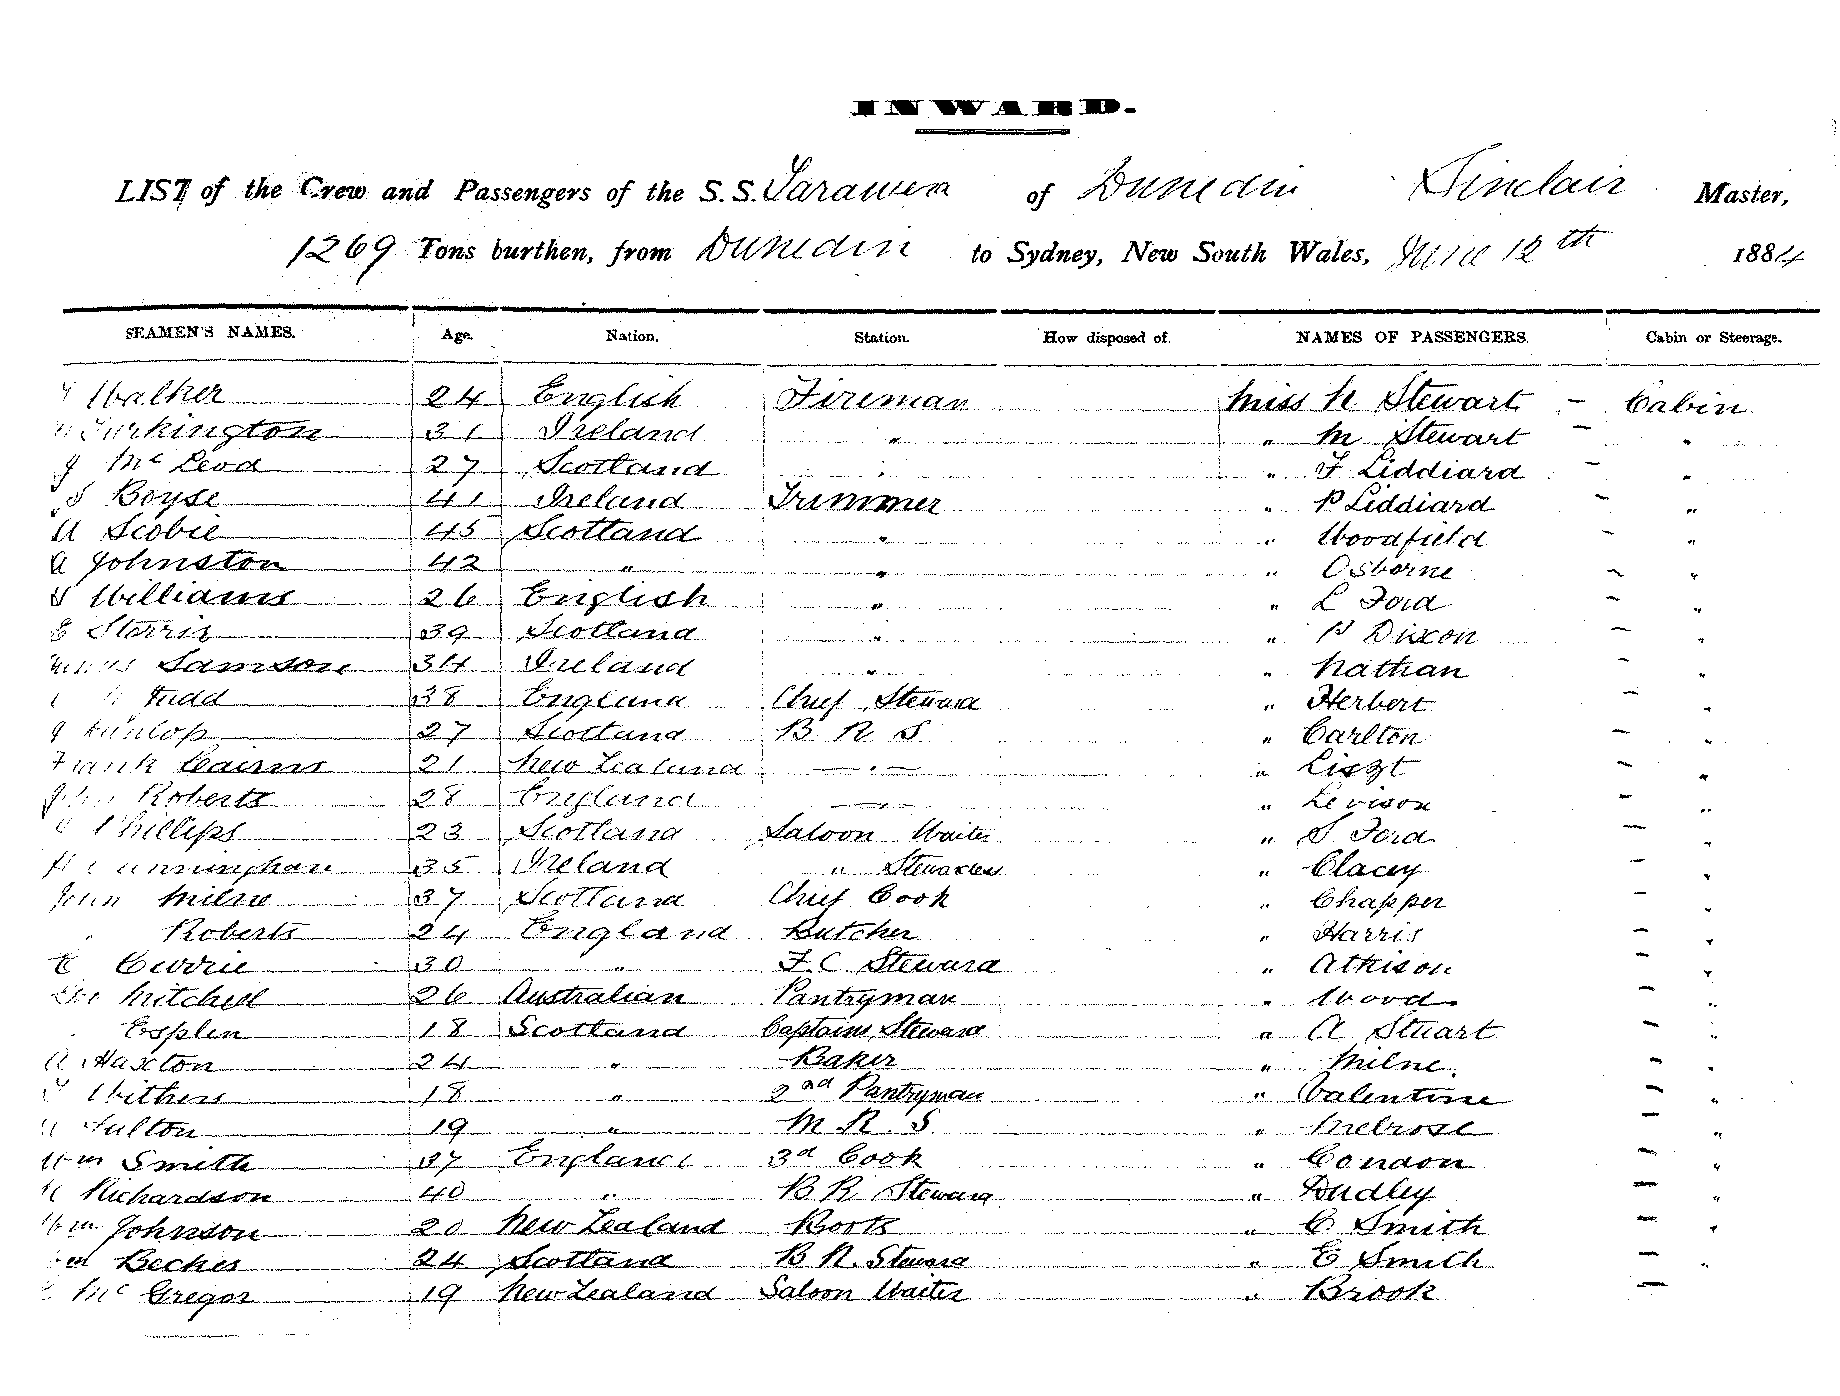 INWARD.
LIST of the Crew and Passengers of the S.S. Tarawera of Dunedin Sinclair Master,
1269 Tons burthen, from Dunedin to Sydney, New South Wales, June 12th 1884
SEAMEN'S NAMES. Age. Nation. Station. How disposed of. NAMES OF PASSENGERS. Cabin or Steerage.
Walker 24 English Fireman Miss N Stewart - Cabin
Turkington 31 Ireland " " M Stewart - "
J McLeod 27 Scotland " " F Liddiard - "
S Boyse 41 Ireland Trimmer " P Liddiard - "
A Scobie 45 Scotland " " Woodfield - "
A Johnston 42 " " " Osborne - "
Williams 26 English " " L Ford - "
E Storris 39 Scotland " " P Dixon - "
Samson 34 Ireland " " Nathan - "
Tudd 38 England Chief Steward " Herbert - "
J Dunlop 27 Scotland B R S " Carlton - "
Frank Cairns 21 New Zealand " " Liszt - "
John Roberts 28 England " " Levison - "
Phillips 23 Scotland Saloon Waiter " S Ford - "
Cunningham 35 Ireland " Stewardess " Clacey - "
John Milne 37 Scotland Chief Cook " Chapper - "
Roberts 24 England Butcher " Harris - "
E Currie 30 " F.C. Steward " Atkison - "
Geo Mitchell 26 Australian Pantryman " Wood - "
Esplen 18 Scotland Captains Steward " A Stuart - "
A Haxton 24 " Baker " Milne. - "
Withers 18 " 2nd Pantryman " Valentine - "
Fulton 19 " M R. S " Melrose - "
Wm Smith 37 England 3d Cook " Condon - "
Richardson 40 " B R Steward " Dudley - "
Wm Johnson 20 New Zealand Boots " C Smith - "
Becher 24 Scotland B R. Steward " E Smith - "
McGregor 19 New Zealand Saloon Waiter " Brook -